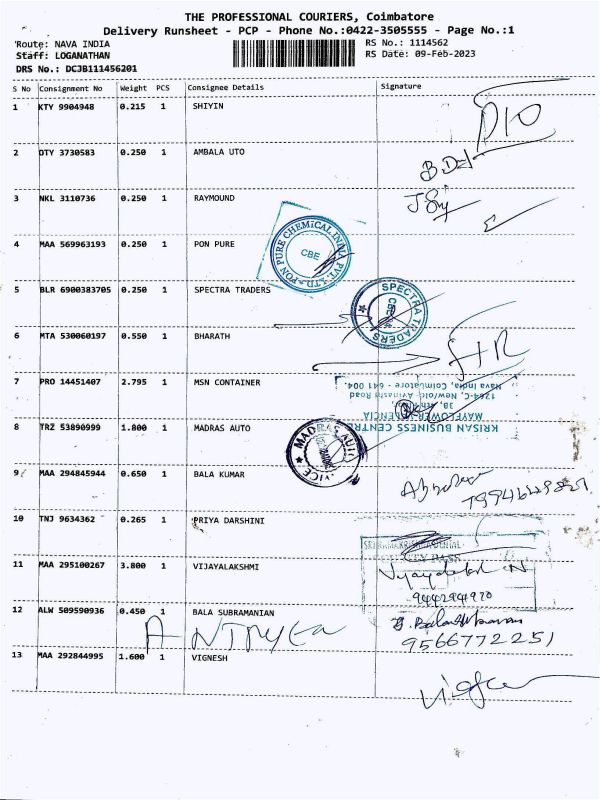 THE PROFESSIONAL COURIERS, Coimbatore
Delivery Runsheet - PCP - Phone No.:0422-3505555 - Page No.:1
Route: NAVA INDIA RS No.: 1114562
Staff: LOGANATHAN RS Date: 09-Feb-2023
DRS No.: DCJB111456201
S No Consignment No Weight PCS Consignee Details Signature
1 KTY 9904948 0.215 1 SHIYIN
2 OTY 3730583 0.250 1 AMBALA UTO
3 NKL 3110736 0.250 1 RAYMOUND
4 MAA 569963193 0.250 1 PON PURE
PON PURE CHEMICAL INDIA PVT. LTD.
CBE
5 BLR 6900383705 0.250 1 SPECTRA TRADERS
SPECTRA TRADERS
CBE
6 MTA 530060197 0.550 1 BHARATH
7 PRO 14451407 2.795 1 MSN CONTAINER
KRISAN BUSINESS CENTRE
MAYFLOWER VALENCIA
1264-C, New/old- Avinashi Road
Nava India, Coimbatore - 641 004.
8 TRZ 53890999 1.800 1 MADRAS AUTO
MADRAS AUTO
9 MAA 294845944 0.650 1 BALA KUMAR
10 TNJ 9634362 0.265 1 PRIYA DARSHINI
11 MAA 295100267 3.800 1 VIJAYALAKSHMI
9442941920
12 ALW 509590936 0.450 1 BALA SUBRAMANIAN
9566772251
13 MAA 292844995 1.600 1 VIGNESH